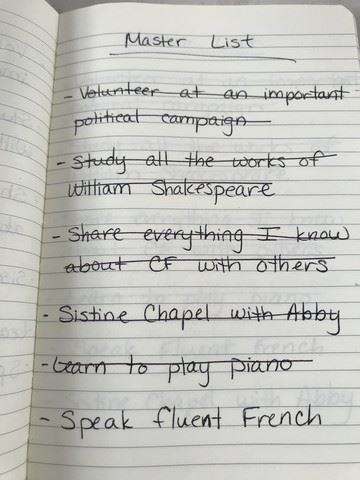 Master List
- Volunteer at an important
political campaign
- Study all the works of
William Shakespeare
- Share everything I know
about CF with others
- Sistine Chapel with Abby
- Learn to play piano
- Speak fluent French